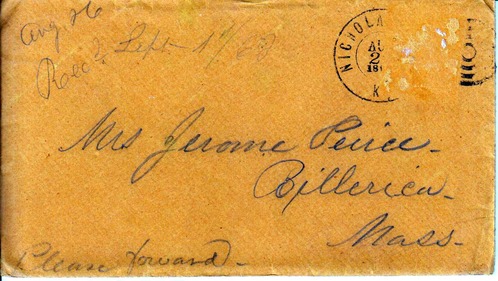 Aug 26
Recd Sept 1st / 63
NICHOLA
AU
2
18
K
Mrs Jerome Peirce -
Billerica -
Mass -
Please forward -